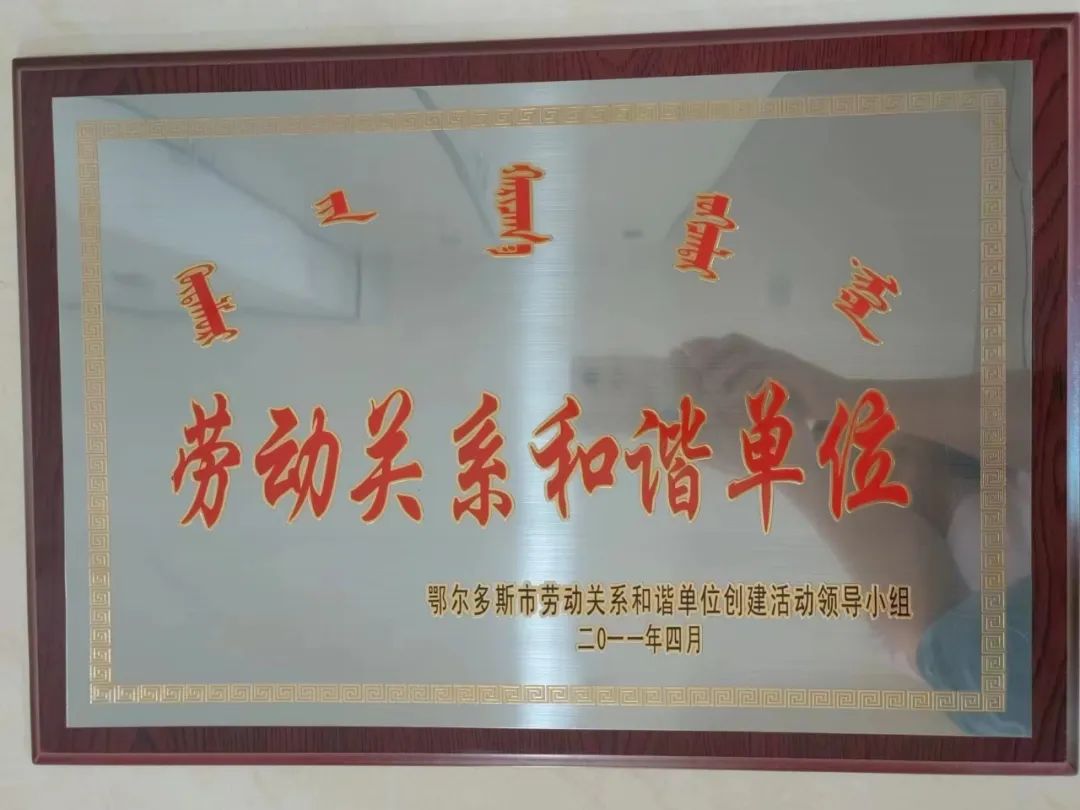 劳动关系和谐单位
鄂尔多斯市劳动关系和谐单位创建活动领导小组
二0一一年四月